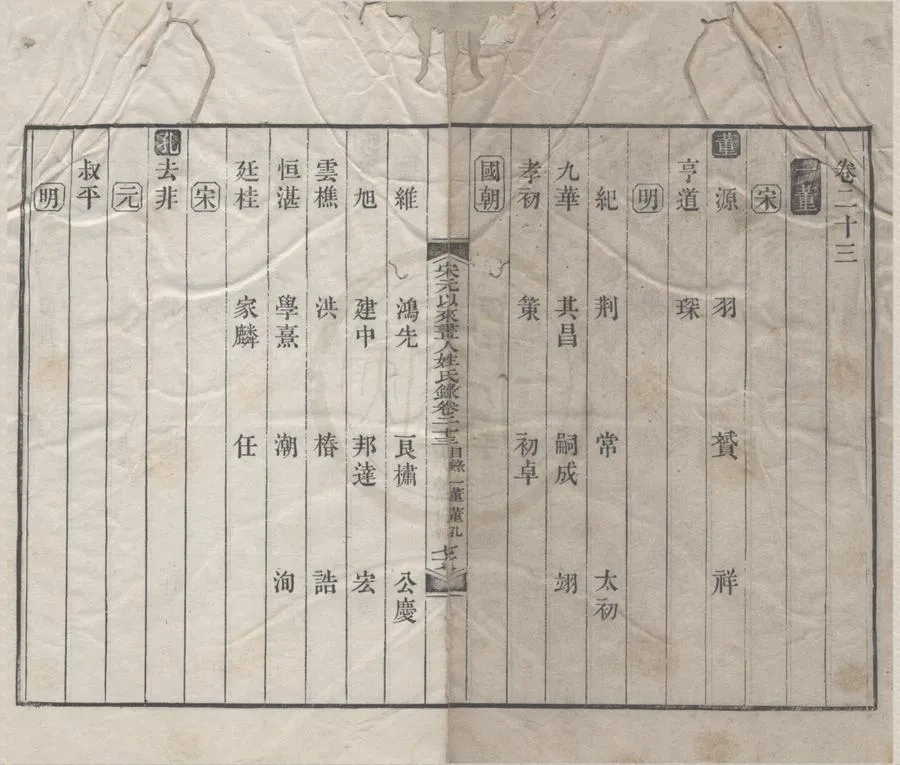 卷二十三
一董
宋
董 源 羽 贇 祥
亨道 琛
明
紀 荆 常 太初
九華 其昌 嗣成 翊
孝初 策 初卓
國朝
宋元以來畫人姓氏錄卷二十三 目錄 一董 董 孔
維 鴻先 良橚 公慶
旭 建中 邦達 宏
雲樵 洪 椿 誥
恒湛 學熹 潮 洵
廷桂 家麟 任
宋
孔 去非
元
叔平
明